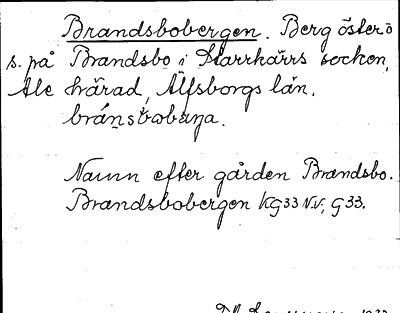 Brandsbobergen. Berg öster ö
s. på Brandsbo i Starrkärrs socken,
Ale härad, Älfsborgs län.
Namn efter gården Brandsbo.
Brandsbobergen KG33 N.V., G33.